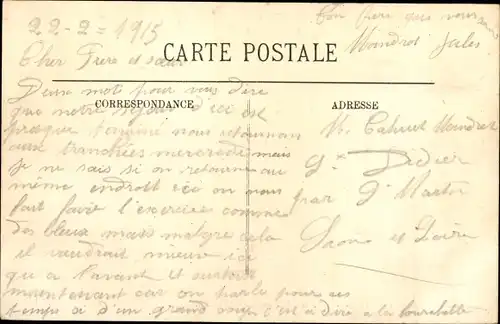 22-2-1915
Ton frère que vous
Mandrot Jules
CARTE POSTALE
Cher Frère et sœur
CORRESPONDANCE
Deux mots pour vous dire
que notre séjour d'ici est
presque terminé nous retournons
aux tranchées mercredi mais
je ne sais si on retourne au
même endroit ici on nous
fait faire l'exercice comme
des bleus mais malgré cela
il vaudrait mieux ici
qu a l'avant et surtout
maintenant car on parle pour ces
temps si d'un grand coup c'est a dire a la
ADRESSE
M. Mandrot
St Didier
par St Martin
Saone et Loire